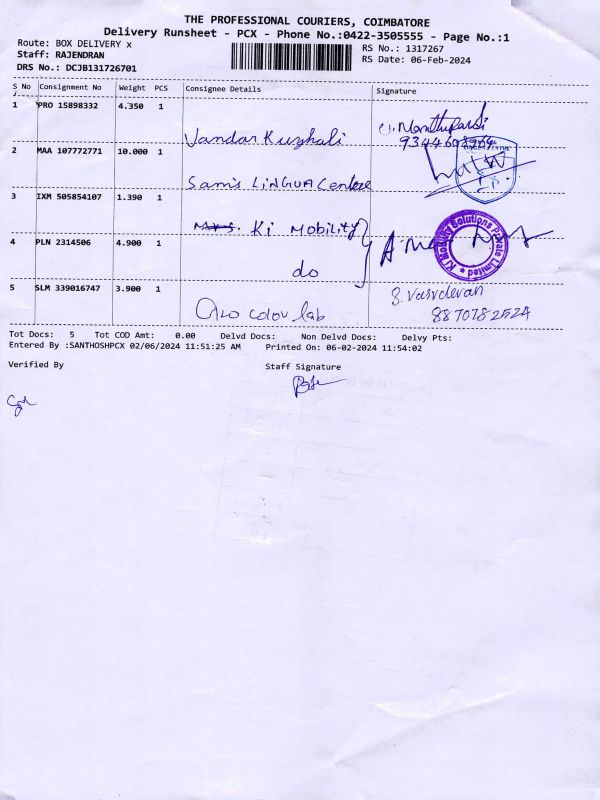 THE PROFESSIONAL COURIERS, COIMBATORE
Delivery Runsheet - PCX - Phone No.:0422-3505555 - Page No.:1
Route: BOX DELIVERY x
RS No.: 1317267
Staff: RAJENDRAN
RS Date: 06-Feb-2024
DRS No.: DCJB131726701
S No Consignment No Weight PCS Consignee Details Signature
1 PRO 15898332 4.350 1
Vandar Kuzhali
2 MAA 107772771 10.000 1
Sam's LINGUA Centre
3 IXM 505854107 1.390 1
Mrs. Ki Mobility
KI Mobility Solutions Private Limited
4 PLN 2314506 4.900 1
do
5 SLM 339016747 3.900 1
colour lab
S. Vasudevan
8870782524
Tot Docs: 5 Tot COD Amt: 0.00 Delvd Docs: Non Delvd Docs: Delvy Pts:
Entered By :SANTHOSHPCX 02/06/2024 11:51:25 AM Printed On: 06-02-2024 11:54:02
Verified By Staff Signature